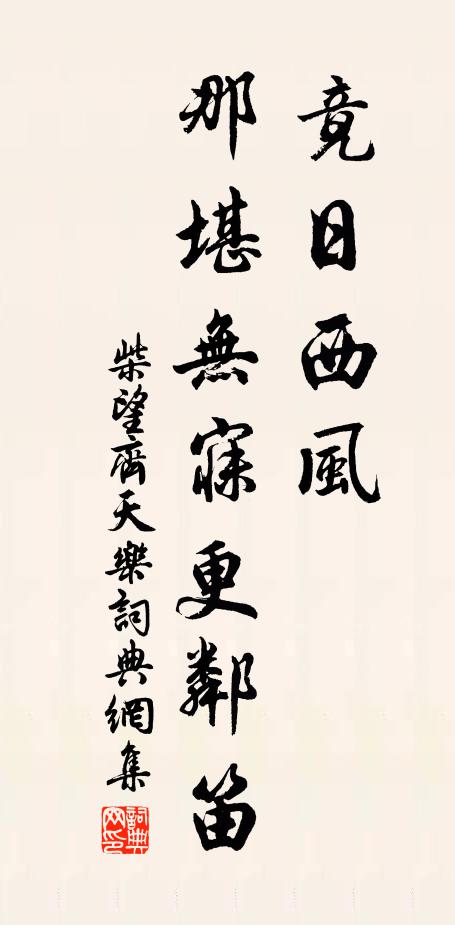 竟日西風
那堪無寐更鄰笛
柴望齊天樂詞典網集
詞典網印